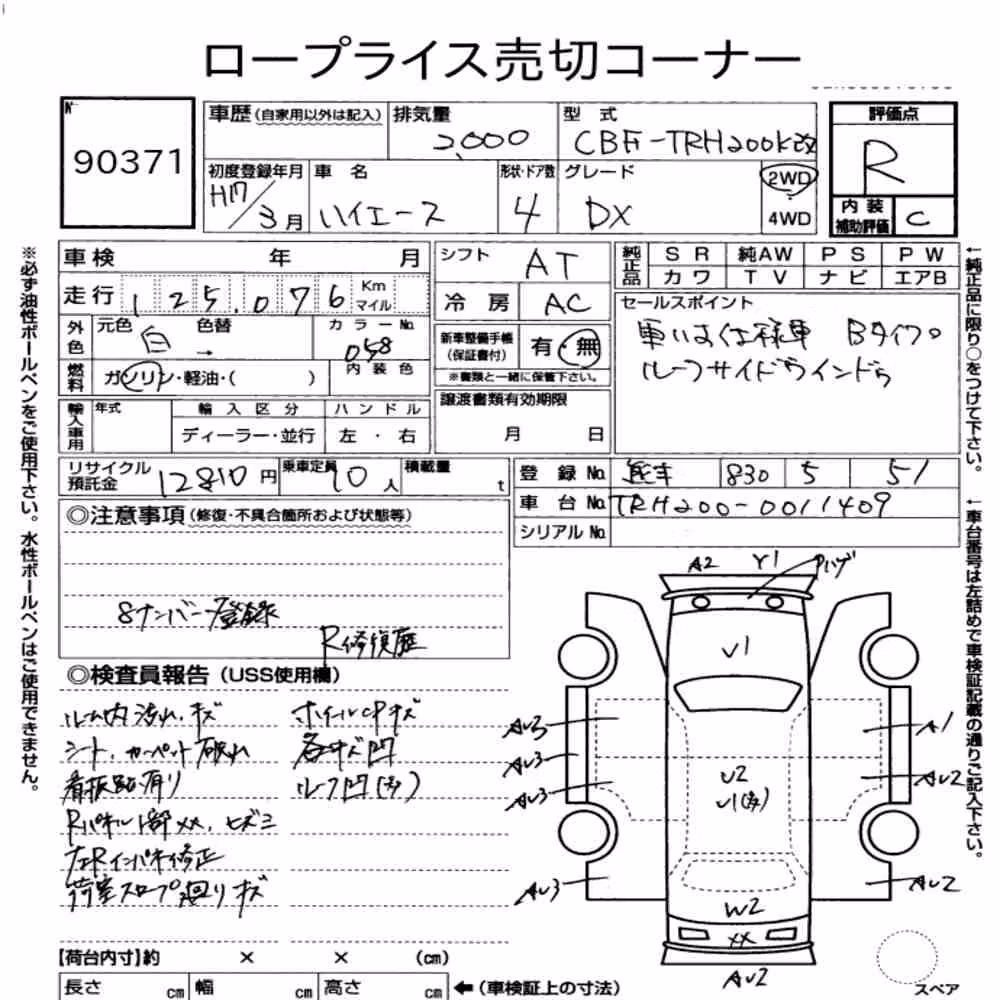 ロープライス売切コーナー
No
90371
車歴 (自家用以外は記入)
排気量
2,000
型 式
CBF-TRH200K改
評価点
R
初度登録年月
H17/3月
車 名
ハイエース
形状・ドア数
4
グレード
DX
2WD
4WD
内 装
補助評価
C
車検 年 月
走行 125,076 Km マイル
シフト AT
冷 房 AC
純正品
S R 純AW P S P W
カワ T V ナビ エアB
外色
元色 白 色替 →
カラーNo. 058
内 装 色
燃料
ガソリン・軽油・( )
新車整備手帳
(保証書付)
有・無
※書類と一緒に保管下さい。
セールスポイント
車いす仕様車 Bタイプ。
ルーフサイドウインドウ
輸入車用
年式
輸 入 区 分
ハ ン ド ル
ディーラー・並行
左・右
譲渡書類有効期限
月 日
リサイクル
預託金
12810円
乗車定員 10人
積載量 t
登 録 No. 熊本 830 5 51
車 台 No. TRH200-0011409
シリアル No.
◎注意事項 (修復・不具合箇所および状態等)
8ナンバー登録
R修復歴
◎検査員報告 (USS使用欄)
ルーム内汚れ、キズ
シート、カーペット破れ
看板跡有り
Rパネル1部XX、ヒズミ
左Rインパネ修正
荷室スロープ廻りキズ
ホイールCPキズ
各キズ凹
ルーフ凹(多)
A2 Y1 Pハゲ
U1
AU3 A1
AU3 AU2
AU3
U2
U1(多)
AU3 AU2
W2
XX
AU2
【荷台内寸】約 × × (cm)
長さ cm 幅 cm 高さ cm ←(車検証上の寸法)
スペア
※必ず油性ボールペンをご使用下さい。水性ボールペンはご使用できません。
←純正品に限り○をつけて下さい。
←車台番号は左詰めで車検証記載の通りご記入下さい。